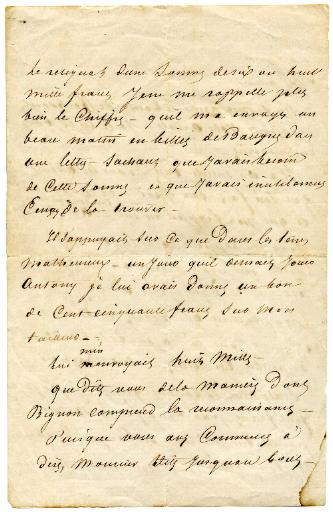 le reliquat d'une somme de six ou huit
mille francs Je ne me rappelle plus
bien le chiffre - qu'il me envoya un
beau matin en billets de Banque dans
une lettre - sachant que J'avais besoin
de cette somme - et que J'avais inutilement
de la trouver -
Il s'appuyait sur ce que dans les tems
malheureux - un jour qu'il devait Jouer
Antony je lui avais donné un bon
de cent cinquante francs sur mon
tailleur -
lui m'en envoyait huit Mille -
que dites vous de la manière dont
Bignon comprend la reconnaissance -
Puisque vous avez Commencé à
dire, Monsieur dites Jusqu'au bout -